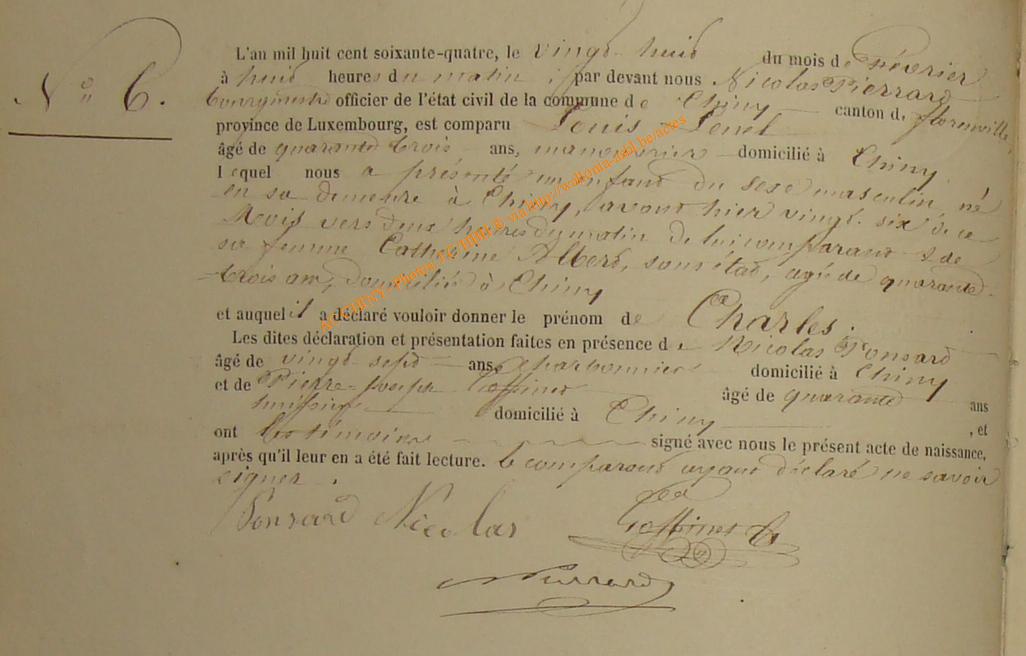 N° 6.
L'an mil huit cent soixante-quatre, le vingt huit du mois de Février
à huit heures du matin, par devant nous Nicolas Pierrard
bourgmestre officier de l'état civil de la commune de Chiny canton de florenville
province de Luxembourg, est comparu Louis
âgé de quarante trois ans, manouvrier domicilié à Chiny
lequel nous a présenté un enfant du sexe masculin, né
en sa demeure à Chiny, avant hier vingt six de ce
Mois vers deux heures du matin de lui comparant & de
sa femme Catherine Albert, sans état, agé de quarante
trois ans, domiciliée à Chiny
et auquel il a déclaré vouloir donner le prénom de Charles.
Les dites déclaration et présentation faites en présence de Nicolas Ponsard
âgé de vingt sept ans, charbonnier domicilié à Chiny
et de Pierre-Joseph Goffinet âgé de quarante ans
domicilié à Chiny, et
ont les témoins signé avec nous le présent acte de naissance,
après qu'il leur en a été fait lecture. le comparant ayant déclaré ne savoir
signer.
Ponsard Nicolas Goffinet
Pierrard